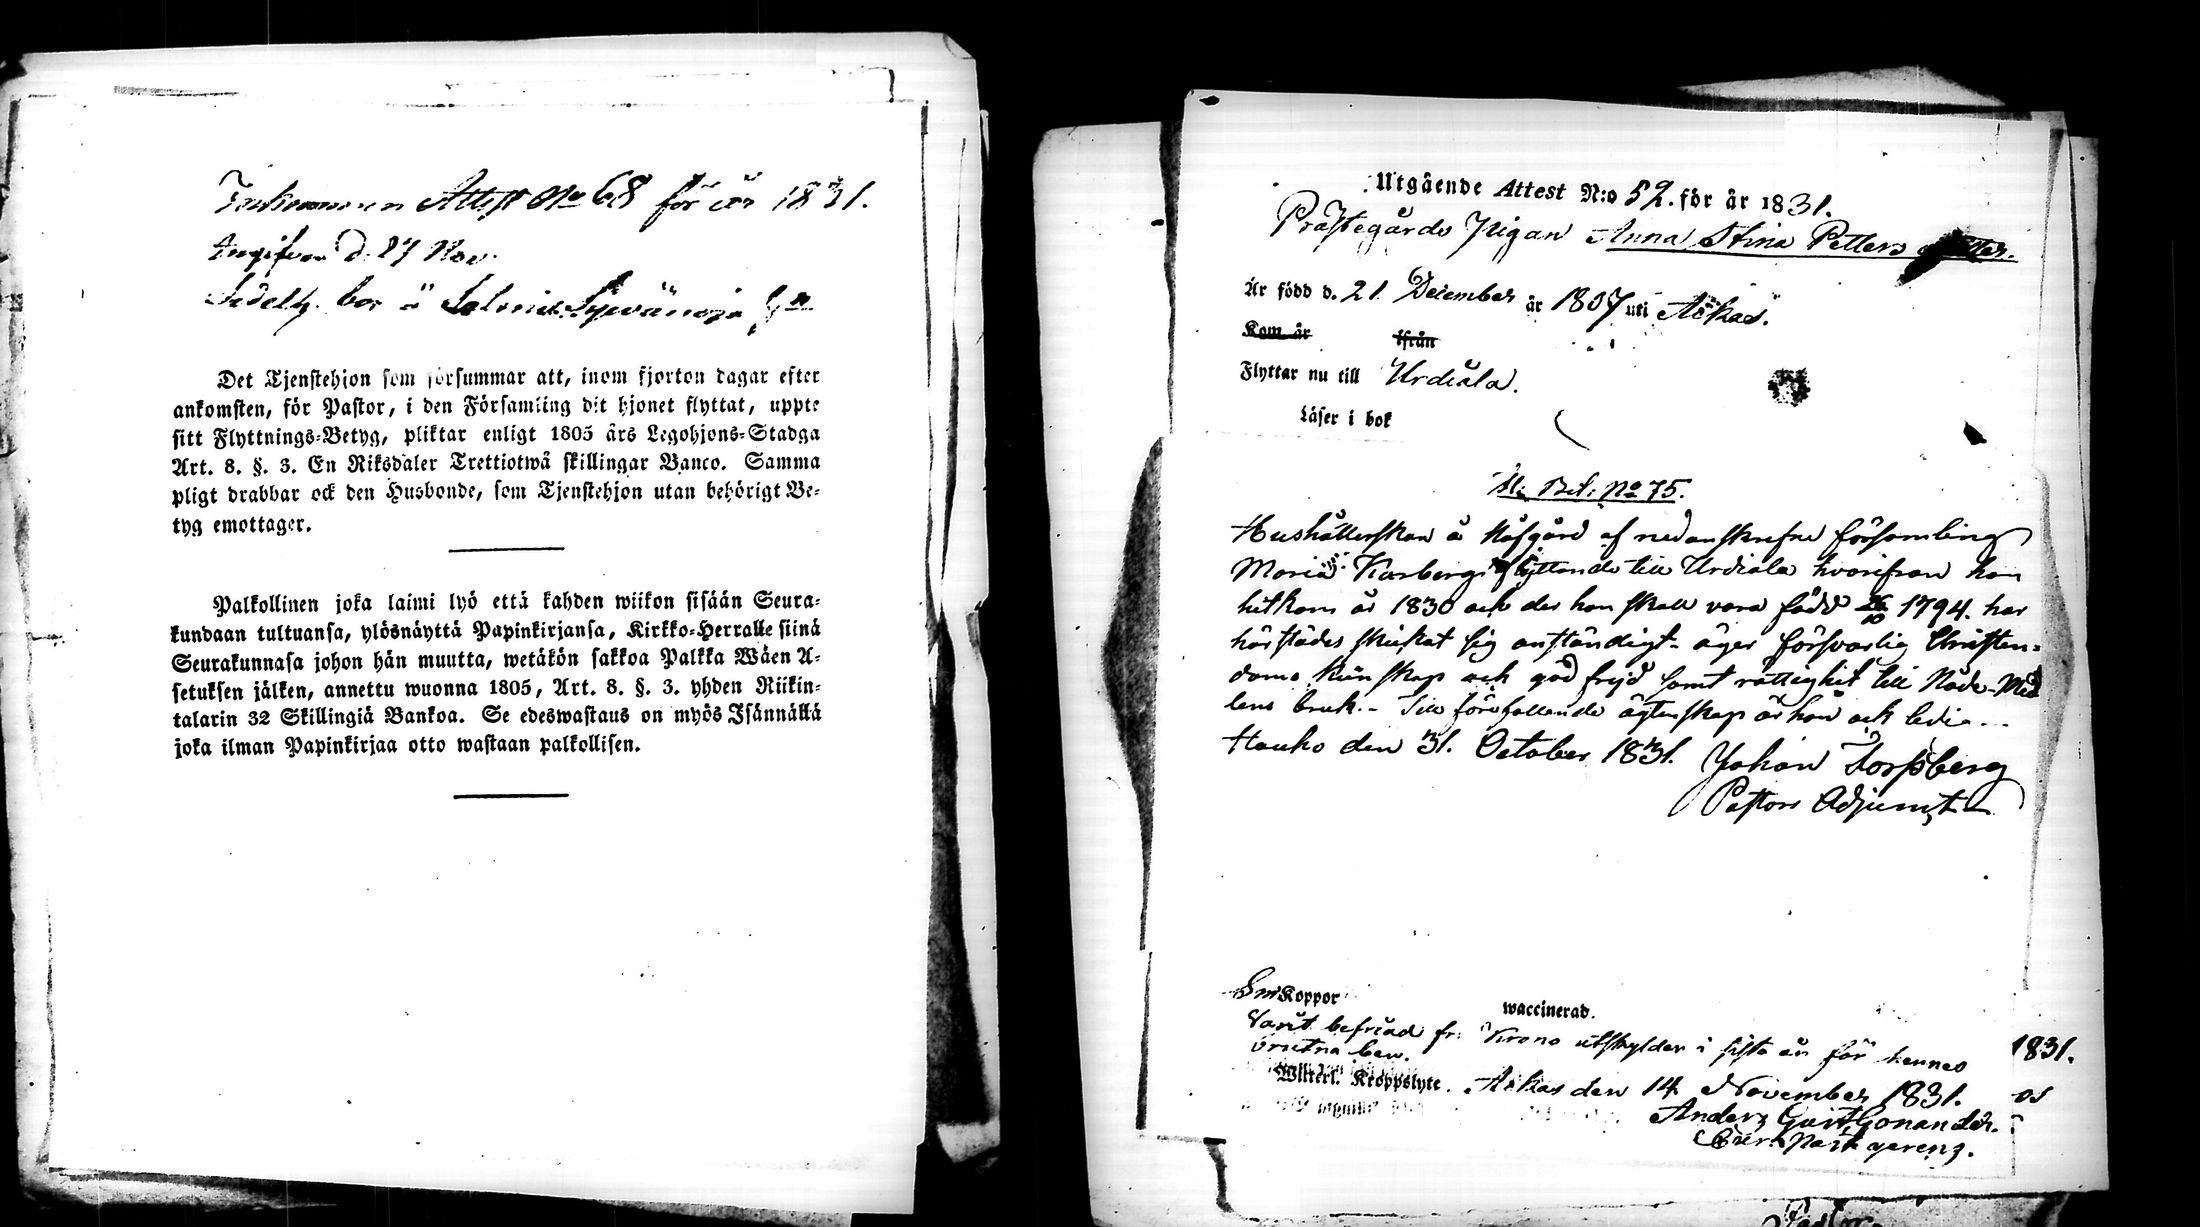 Inkommen Attest No 68 för år 1831.
Angifven d. 27 Nov.
bor å
Det Tjenstehjon som försummar att, inom fjorton dagar efter
ankomsten, för Pastor, i den Församling dit hjonet flyttat, uppte
sitt Flyttnings-Betyg, pliktar enligt 1805 års Legohjons-Stadga
Art. 8. §. 3. En Riksdaler Trettiotwå skillingar Banco. Samma
pligt drabbar ock den Husbonde, som Tjenstehjon utan behörigt Be-
tyg emottager.
Palkollinen joka laimi lyö että kahden wiikon sisään Seura-
kundaan tultuansa, ylösnäyttä Papinkirjansa, Kirkko-Herralle siinä
Seurakunnasa johon hän muutta, wetäkön sakkoa Palkka Wäen A-
setuksen jälken, annettu wuonna 1805, Art. 8. §. 3. yhden Riikin-
talarin 32 Skillingiä Bankoa. Se edeswastaus on myös Isännällä
joka ilman Papinkirjaa otto wastaan palkollisen.
Utgående Attest N:o 52. för år 1831.
Prästegårds Pigan Anna Stina Petters
Är född d. 21 December år 1807 uti Ackas.
Kom år ifrån
Flyttar nu till Urdiala.
Läser i bok
Bet: No 75.
Hushållerskan å Håfgård af nedanskrefne församling
Maria Karberg flyttande till Urdiala hvarifrån hon
hitkom år 1830 och der hon skall vara född 26/10 1794. har
härstädes skickat sig anständigt - äger försvarlig Christen-
doms kunskap och god frejd samt rättighet till Nåde-Med
lens bruk. - Till förefallande ägtenskap är hon ock ledig.
Hauho den 31. October 1831. Johan Forssberg
Pastors Adjunct
Smkoppor waccinerad.
Varit befriad fr: Krono utskylder i sista år för hennes
brutna ben.
Witterl. Kroppslyte. Ackas den 14 November 1831.
Anders Gust Gonander.
1831.